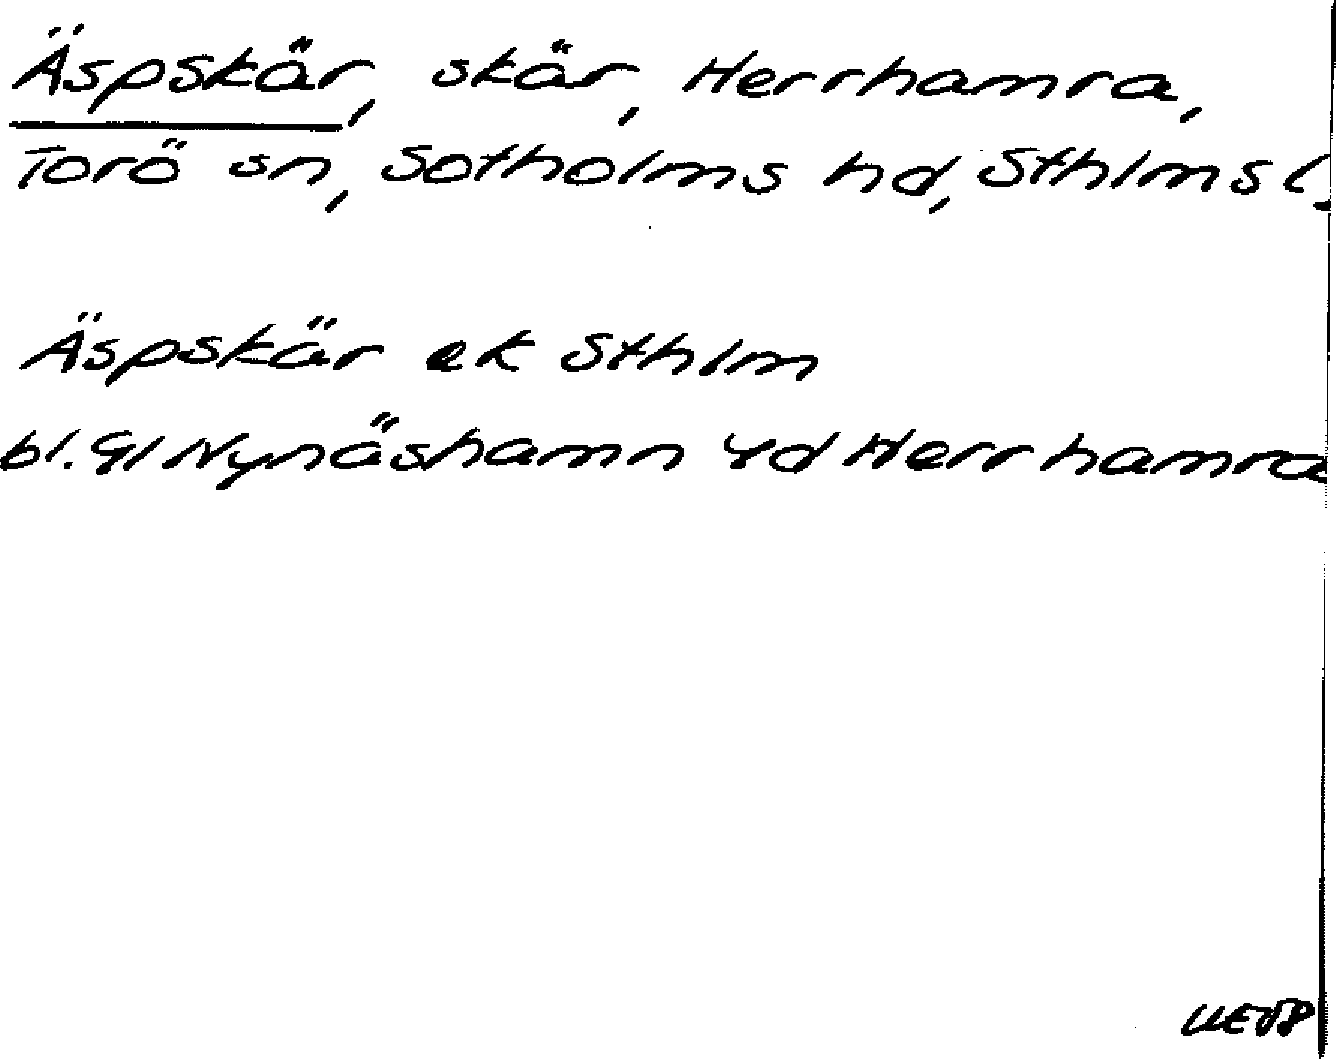 Äspskär, skär, Herrhamra,
Torö sn, Sotholms hd, Sthlms l.
Äspskär ek Sthlm
bl. 9I Nynäshamn 4d Herrhamra